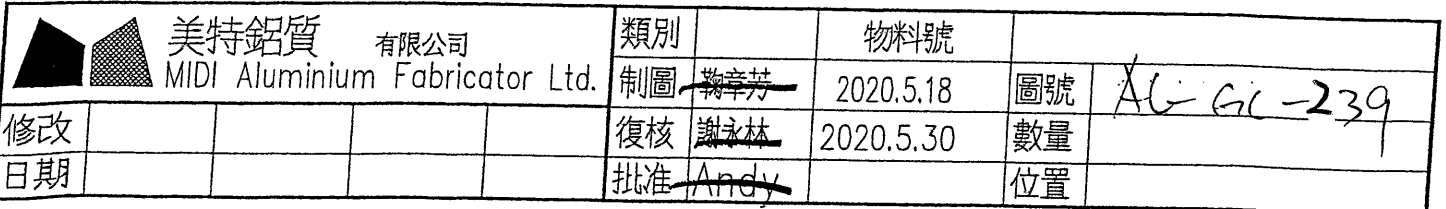 美特鋁質 有限公司
MIDI Aluminium Fabricator Ltd.
類別 物料號
制圖 鞠章芳 2020.5.18 圖號 AG-GC-239
修改 復核 謝永林 2020.5.30 數量
日期 批准 Andy 位置